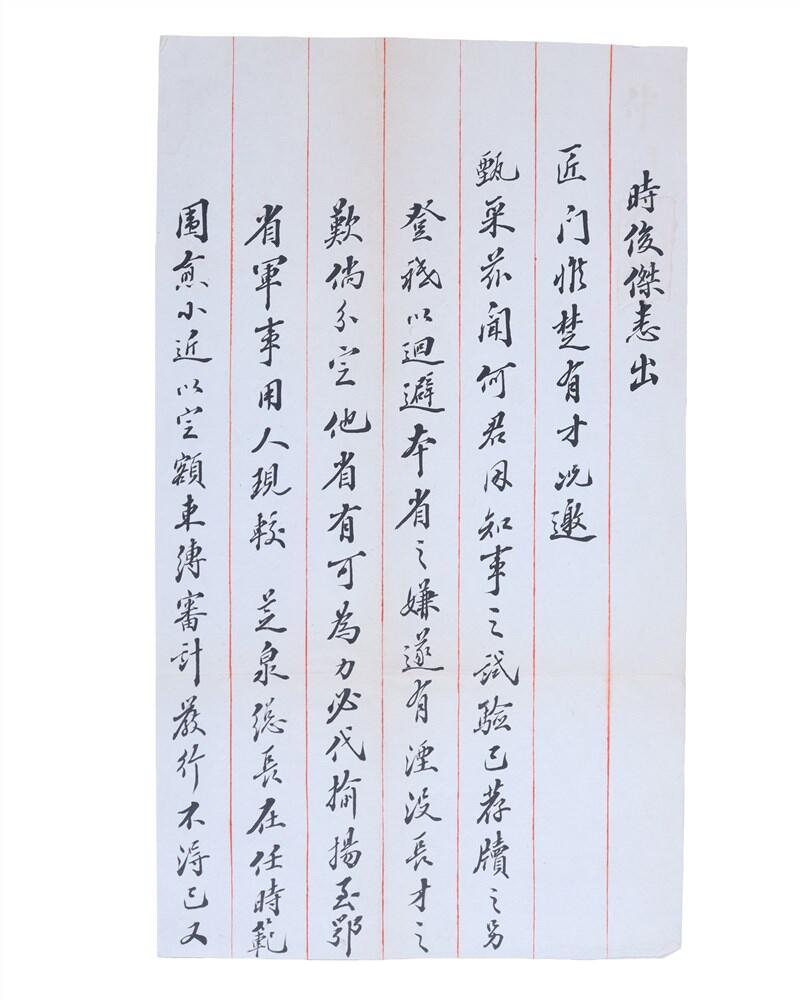 時俊傑悉出
匠门惟楚有才况邀
甄采茲闻何君因知事之試驗已荐牘之另
登祗以迴避本省之嫌遂有湮没長才之
歎倘分定他省有可為力必代揄揚至鄂
省軍事用人現較 芝泉總長在任時範
圍愈小近以定額束縛審計嚴行不得已又